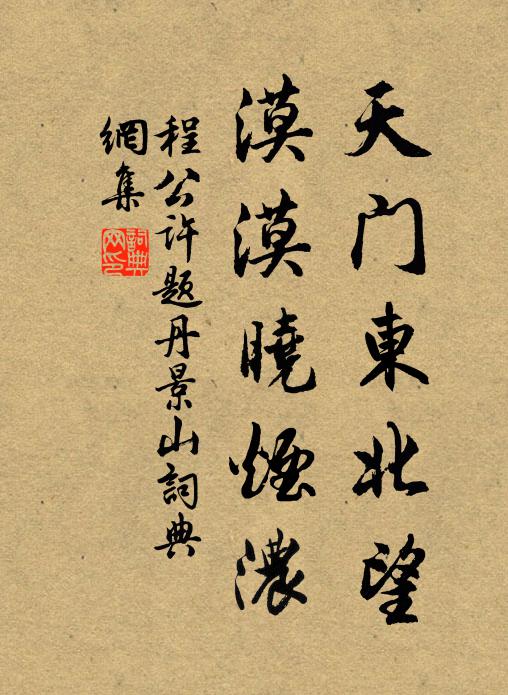 天门東北望
漠漠曉煙濃
程公许题丹景山詞典
網集
詞典
网印